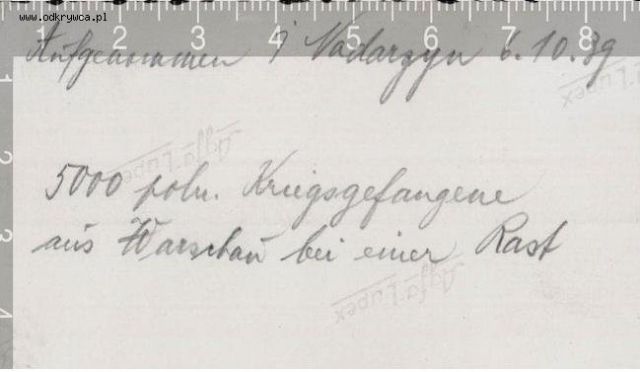 www.odkrywca.pl
1 2 3 4 5 6 7 8
Aufgenommen i Nadarzyn 6.10.39
2
Agfa Lupex
Agfa Lupex
5000 poln. Kriegsgefangene
3
aus Warschau bei einer Rast
Agfa Lupex
4